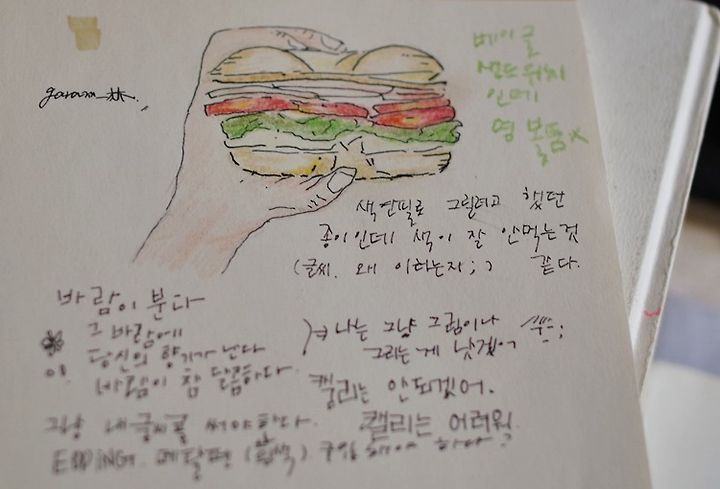 베이글
샌드위치
인데
영 볼품x
색연필로 그릴려고 했던
종이인데 색이 잘 안먹는것
(글씨. 왜 이하는지;;) 같다.
바람이 분다
그 바람에
당신의 향기가 난다
바람이 참 달콤하다.
나는 그냥 그림이나
그리는 게 낫겠어
캘리는 안되겠어.
그냥 내 글씨로 써야 한다. 캘리는 어려워.
펜 (흰색)